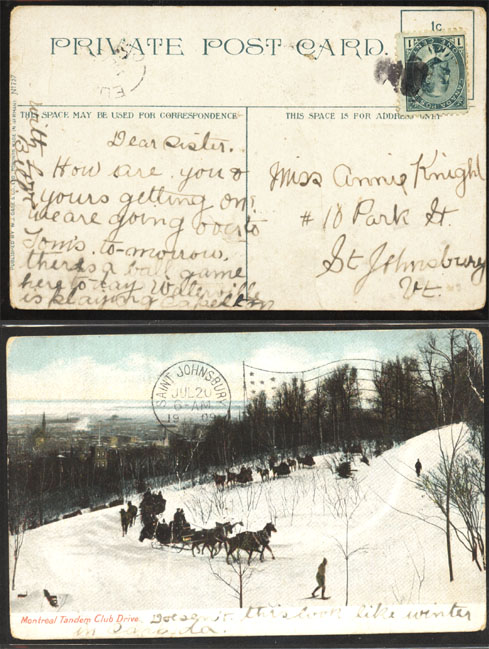 PRIVATE POST CARD.
1c
THIS SPACE MAY BE USED FOR CORRESPONDENCE
THIS SPACE IS FOR ADDRESS ONLY
Dear Sister.
How are you &
yours getting on
we are going over to
Tom's to-morrow,
there's a ball game
here to-day Waterville
is playing
With Love
Miss Annie Knight
# 10 Park St.
St Johnsbury
Vt.
SAINT JOHNSBURY
JUL 20
6-AM
1909
Montreal Tandem Club Drive.
Doesn't this look like winter
in Canada.